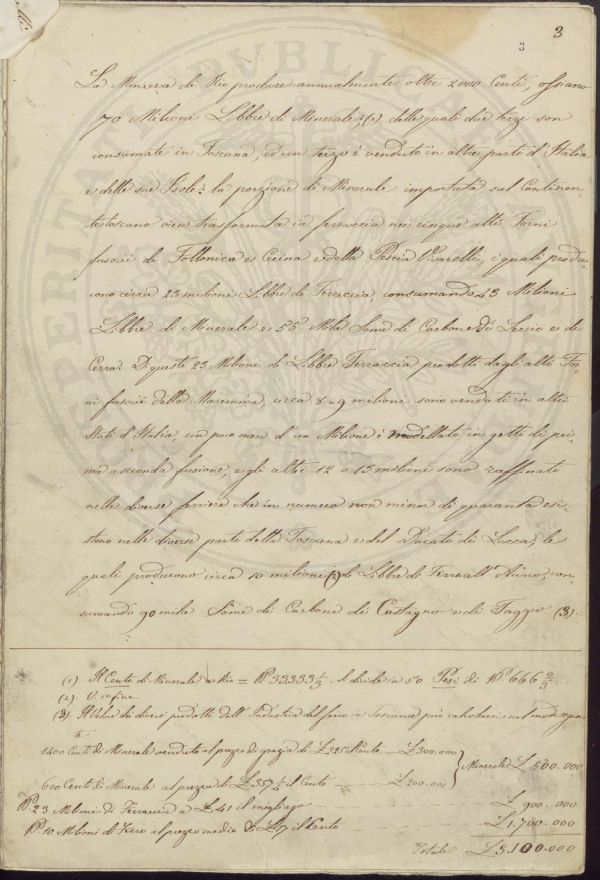 3
3
La Miniera di Rio produce annualmente oltre 2000 Centi, ossiano
70 Milioni Libbre di Minerale; (1) delle quali due terze son
consumate in Toscana, ed un terzo è venduto in altre parte d'Italia
e delle sue Isole: la porzione di Minerale importata sul Continen-
te toscano vien trasformata in ferraccia nei cinque alti Forni
fusorii di Follonica e Cecina e della Pescia Vivarelli, i quali produ-
cono circa 23 milioni Libbre di Ferraccia, consumando 43 Milioni
Libbre di Minerale e 58 Mila Some di Carbone di Leccio e di
Cerro. Di queste 23 Milioni di Libbre Ferraccia prodotti dagli alti For-
ni fusorii della Maremma, circa 8 a 9 milioni sono venduti in altri
Stati d'Italia, un poco meno d'un Milione è modellato in getti di pri-
ma a seconda fusione, e gli altri 12 o 13 milioni sono raffinati
nelle diverse ferriere che in numero non minor di quaranta esi-
stono nelle diverse parte della Toscana e del Ducato di Lucca, le
quali producono circa 10 milioni (2) di Libbre di Ferro all'Anno, con-
sumando 90 mila Some di Carbone di Castagno e di Faggio (3).
(1) Il Cento di Minerale a Rio = 33333 1/3 Si divide in 50 Pesi di 666 2/3
(2) V. in fine
(3) Il Valore dei diversi prodotti dell'Industria del ferro in Toscana può calcolarsi nel modo
1400 Centi di Minerale venduto al prezzo di grazia di il Cento - £ 300.000
Minerale £ 500.000
600 Centi di Minerale al prezzo di £ 337 1/2 il Cento £ 200.000
23 Milioni di Ferraccia a £ 41 il migliajo £ 900.000
10 Milioni di Ferro al prezzo medio di £ 17 il Cento £ 1.700.000
Totale £ 3.100.000